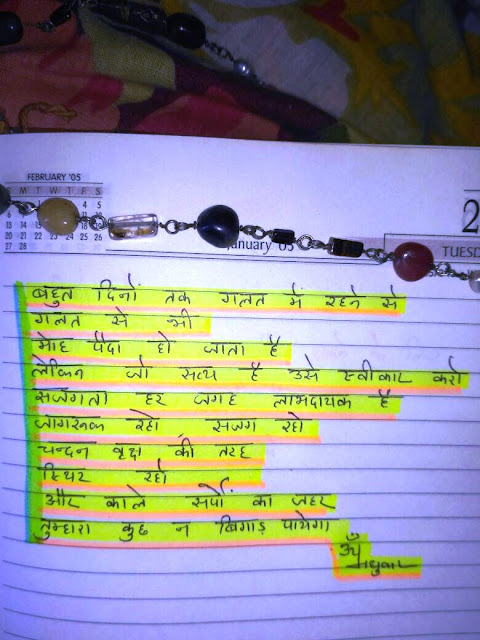 FEBRUARY '05
M T W T F S
4 5
13 14
20 21 22 23 24 25 26
27 28
January '05
2
TUESD
बहुत दिनों तक गलत में रहने से
गलत से भी
मोह पैदा हो जाता है
लेकिन जो सत्य है उसे स्वीकार करो
सजगता हर जगह लाभदायक है
जागरूक रहो , सजग रहो
चन्दन वृक्ष की तरह
स्थिर रहो
और काले सर्पो का जहर
तुम्हारा कुछ न बिगाड़ पायेगा
ॐ